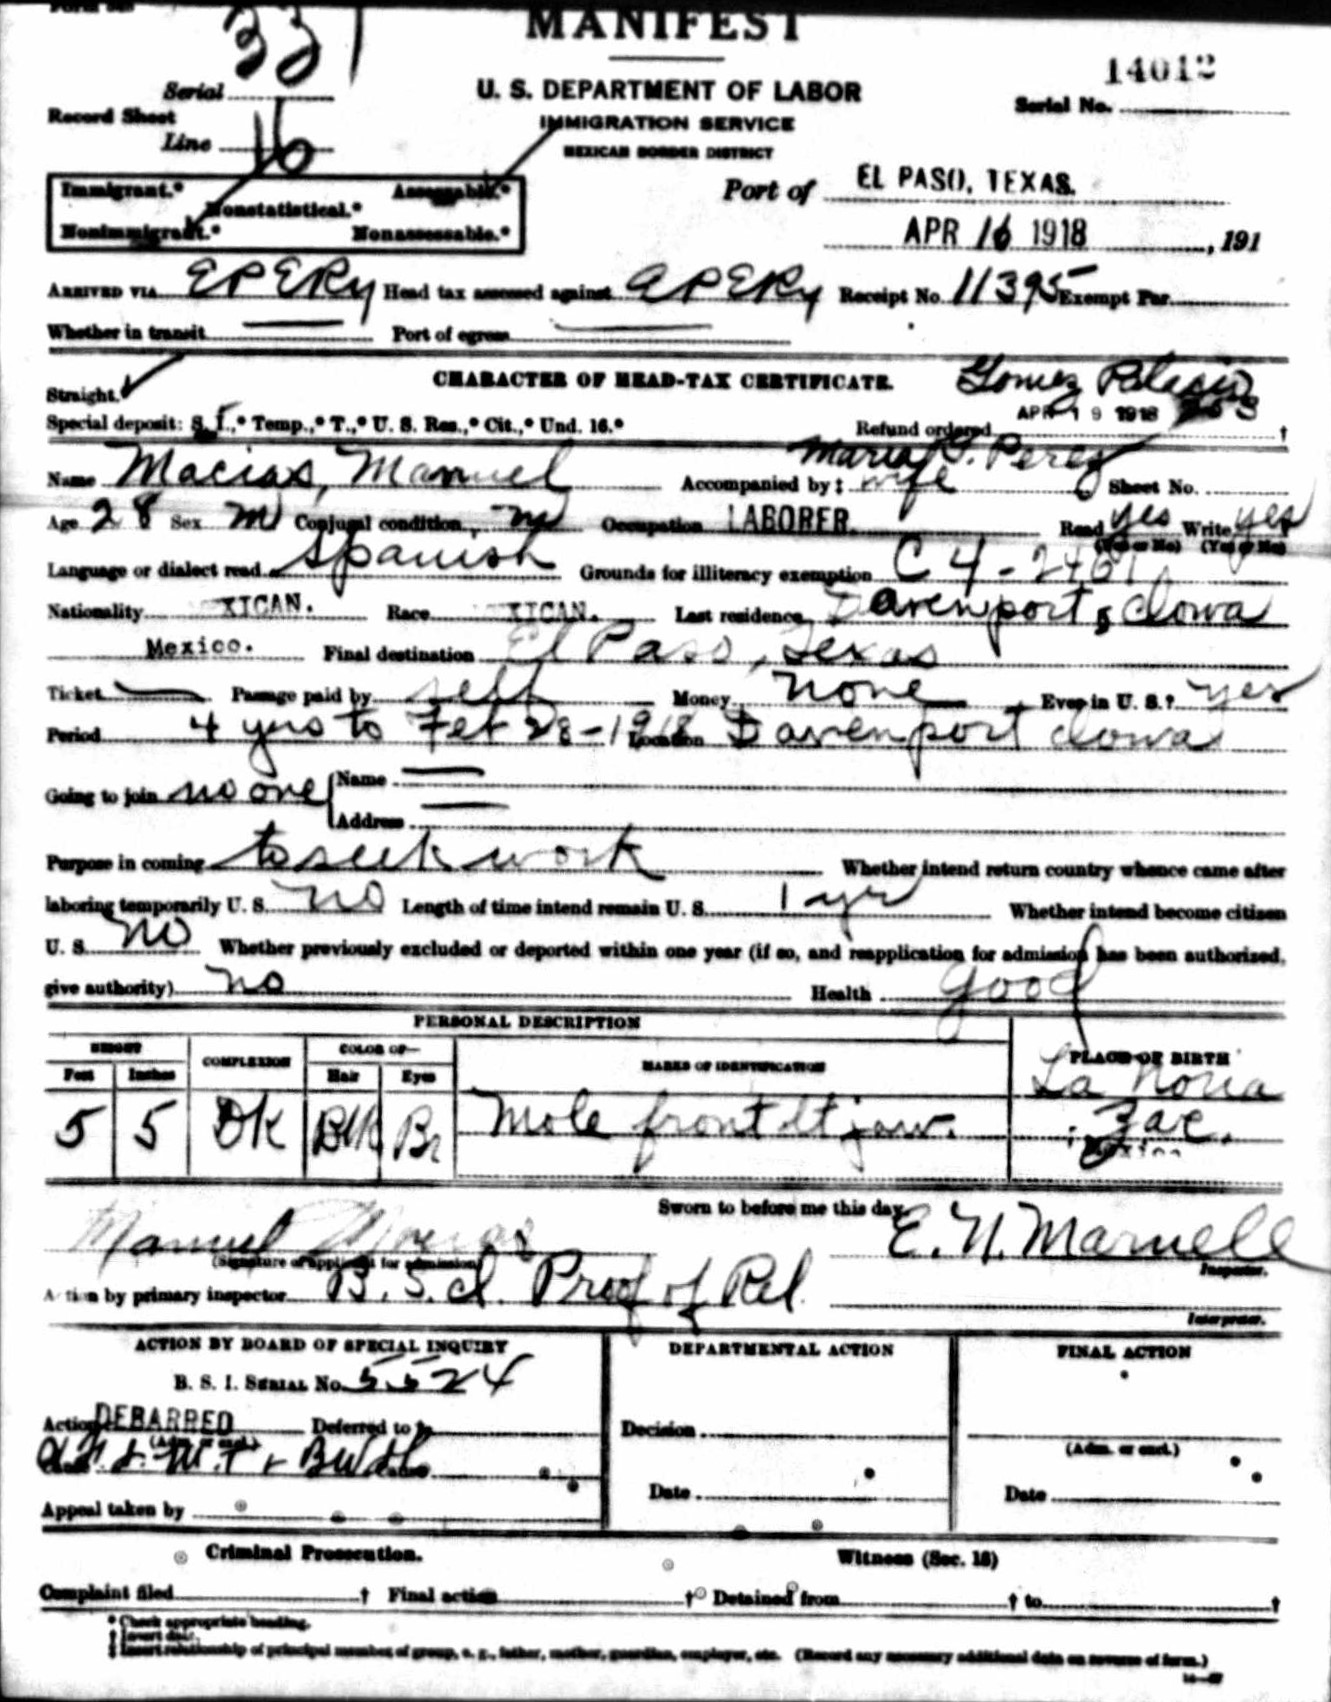 MANIFEST
331
14012
Serial
U. S. DEPARTMENT OF LABOR
Serial No.
Record Sheet
IMMIGRATION SERVICE
Line 16
MEXICAN BORDER DISTRICT
Immigrant.* Assessable.*
Port of EL PASO, TEXAS.
Nonstatistical.*
Nonimmigrant.* Nonassessable.*
APR 16 1918, 191
ARRIVED VIA EPERy Head tax assessed against EPERy Receipt No. 11395 Exempt Par.
Whether in transit Port of egress
Straight. CHARACTER OF HEAD-TAX CERTIFICATE. Gomez Palacio
APR 19 1918
Special deposit: S. I.,* Temp.,* T.,* U. S. Res.,* Cit.,* Und. 16.* Refund ordered †
Maria G. Perez
Name Macias, Manuel Accompanied by ‡ wife Sheet No.
Age 28 Sex M Conjugal condition m Occupation LABORER. Read yes Write yes
(Yes or No) (Yes or No)
Language or dialect read Spanish Grounds for illiteracy exemption C 4-
Nationality XICAN. Race XICAN. Last residence Davenport, Iowa
Mexico. Final destination El Paso, Texas
Ticket Passage paid by self Money none Ever in U. S.? yes
Period 4 yrs to Feb 28-1918 Location Davenport Iowa
Going to join no one Name
Address
Purpose in coming to seek work Whether intend return country whence came after
laboring temporarily U. S. no Length of time intend remain U. S. 1 yr Whether intend become citizen
U. S. no Whether previously excluded or deported within one year (if so, and reapplication for admission has been authorized,
give authority) no Health good
PERSONAL DESCRIPTION
HEIGHT COMPLEXION COLOR OF— MARKS OF IDENTIFICATION PLACE OF BIRTH
Feet Inches Hair Eyes
La Noria
5 5 DK Blk Br Mole front lt jaw. Zac.
Mexico
Sworn to before me this day
Manuel Macias E. N. Marnell
(Signature of applicant for admission) Inspector.
Action by primary inspector B. S. I. Proof of Rel.
Interpreter.
ACTION BY BOARD OF SPECIAL INQUIRY DEPARTMENTAL ACTION FINAL ACTION
B. S. I. SERIAL No. 5524
Action DEBARRED Deferred to Decision
(Adm. or excl.)
Date Date
Appeal taken by
Criminal Prosecution. Witness (Sec. 16)
Complaint filed † Final action † Detained from † to †
* Check appropriate heading.
† Insert date.
‡ Insert relationship of principal member of group, e. g., father, mother, guardian, employer, etc. (Record any necessary additional data on reverse of form.)